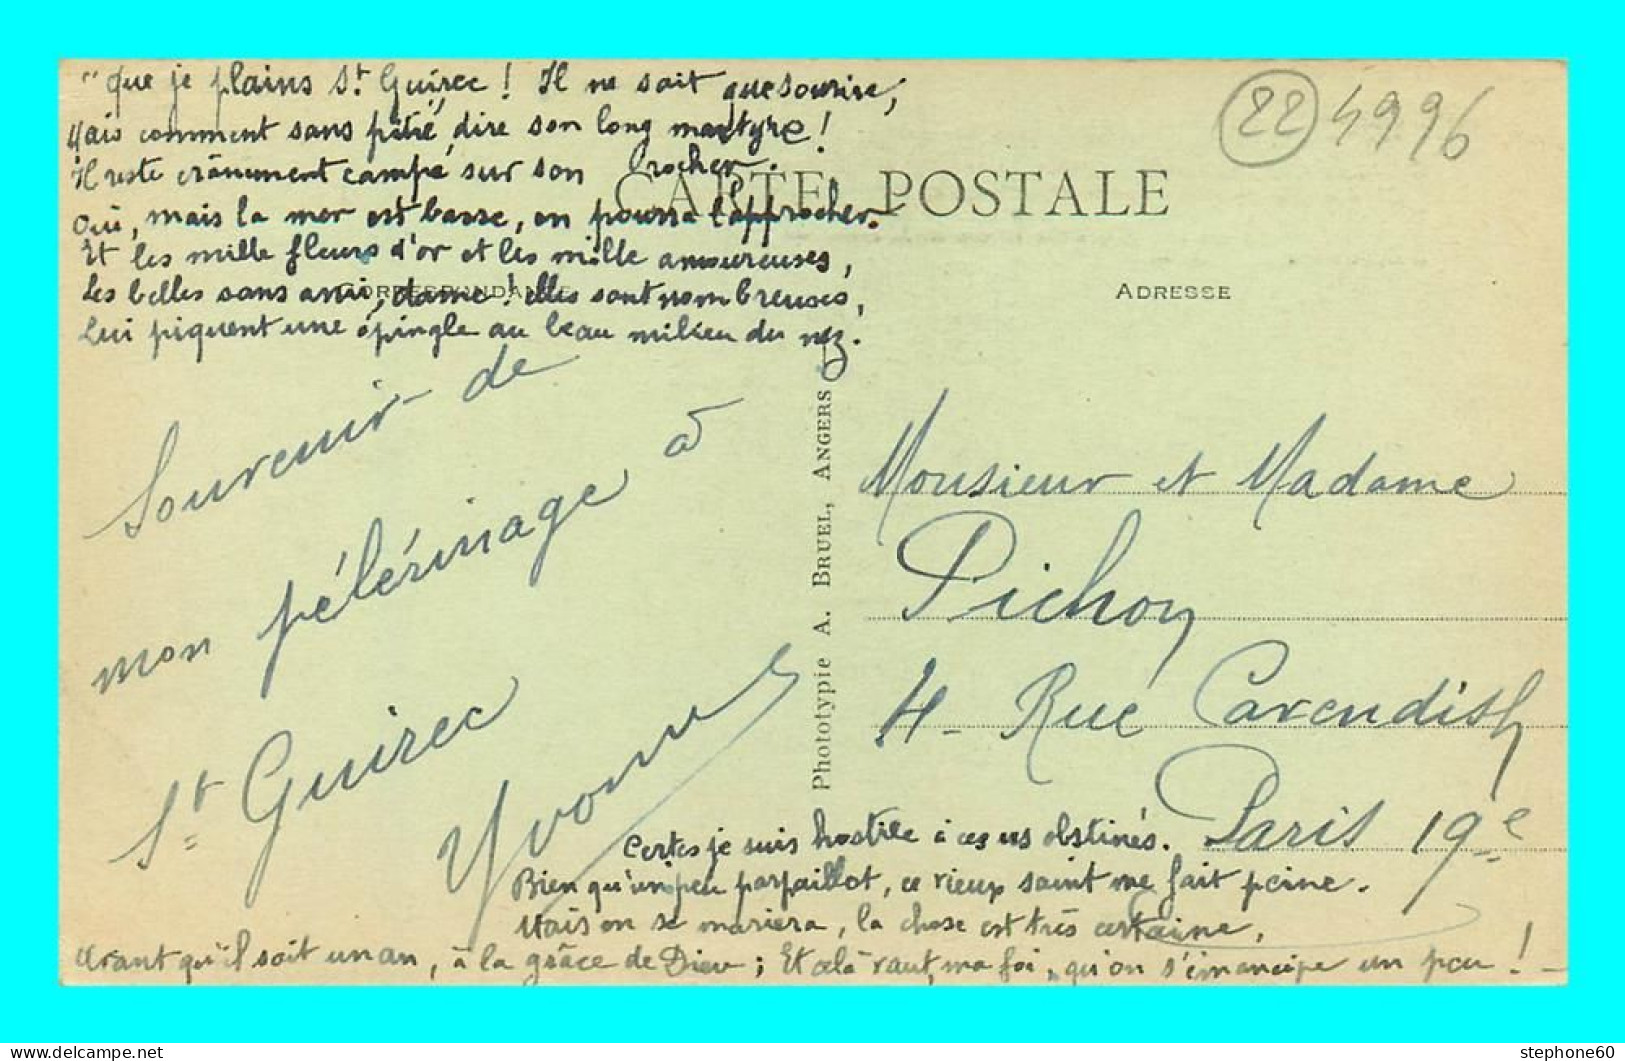 "Que je plains St. Guirec ! Il ne sait que sourire,
Mais comment sans pitié, dire son long martyre !
Il reste crânement campé sur son rocher.
Oui, mais la mer est basse, on pourra l'approcher.
Et les mille fleurs d'or et les mille amoureuses,
Les belles sans ami, dame ! elles sont nombreuses,
Lui piquent une épingle au beau milieu du nez.
22 4996
CARTE POSTALE
CORRESPONDANCE
ADRESSE
Souvenir de
mon pélérinage à
St Guirec
Yvonne
Phototypie A. BRUEL, ANGERS
Monsieur et Madame
Pichon
4 - Rue Cavendish
Paris 19e
Certes je suis hostile à ces us obstinés.
Bien qu'un peu parpaillot, ce vieux saint me fait peine.
Mais on se mariera, la chose est très certaine,
Avant qu'il soit un an, à la grâce de Dieu ; Et celà vaut, ma foi, qu'on s'émancipe un peu ! -
stephone60